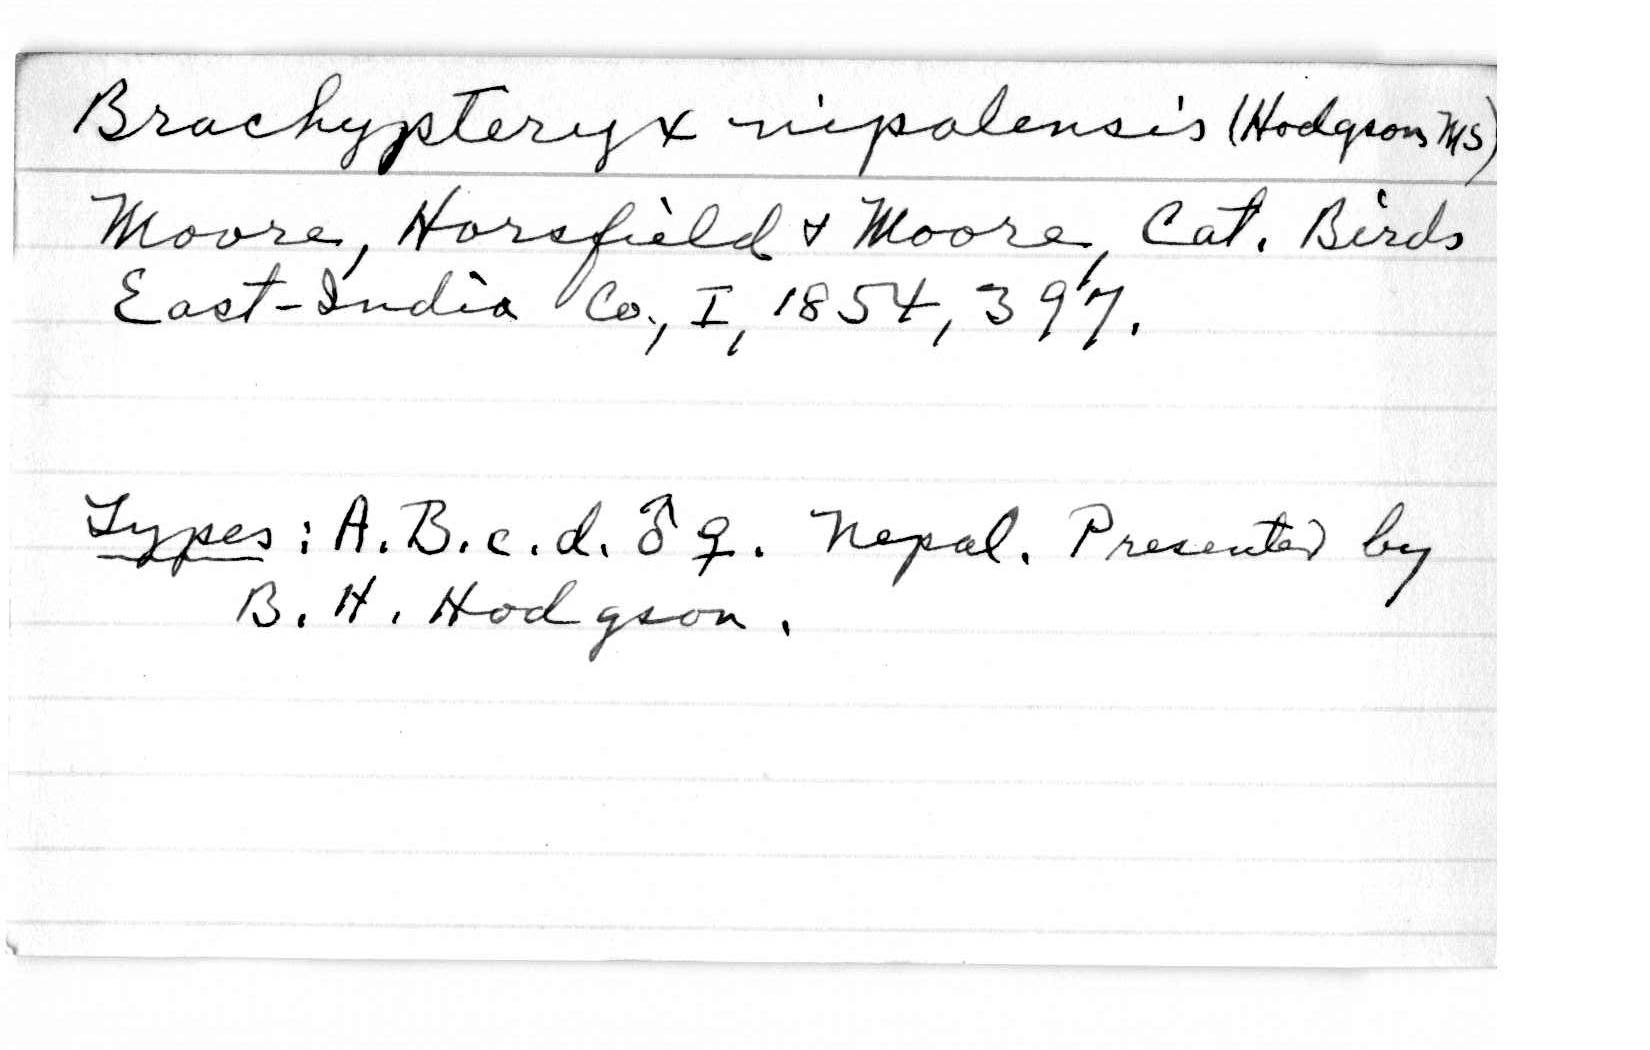 Brachypteryx nipalensis (Hodgson MS)
Moore, Horsfield & Moore, Cat. Birds
East-India Co., I, 1854, 397.
Types: A.B.c.d. ♂ ♀. Nepal. Presented by
B. H. Hodgson.